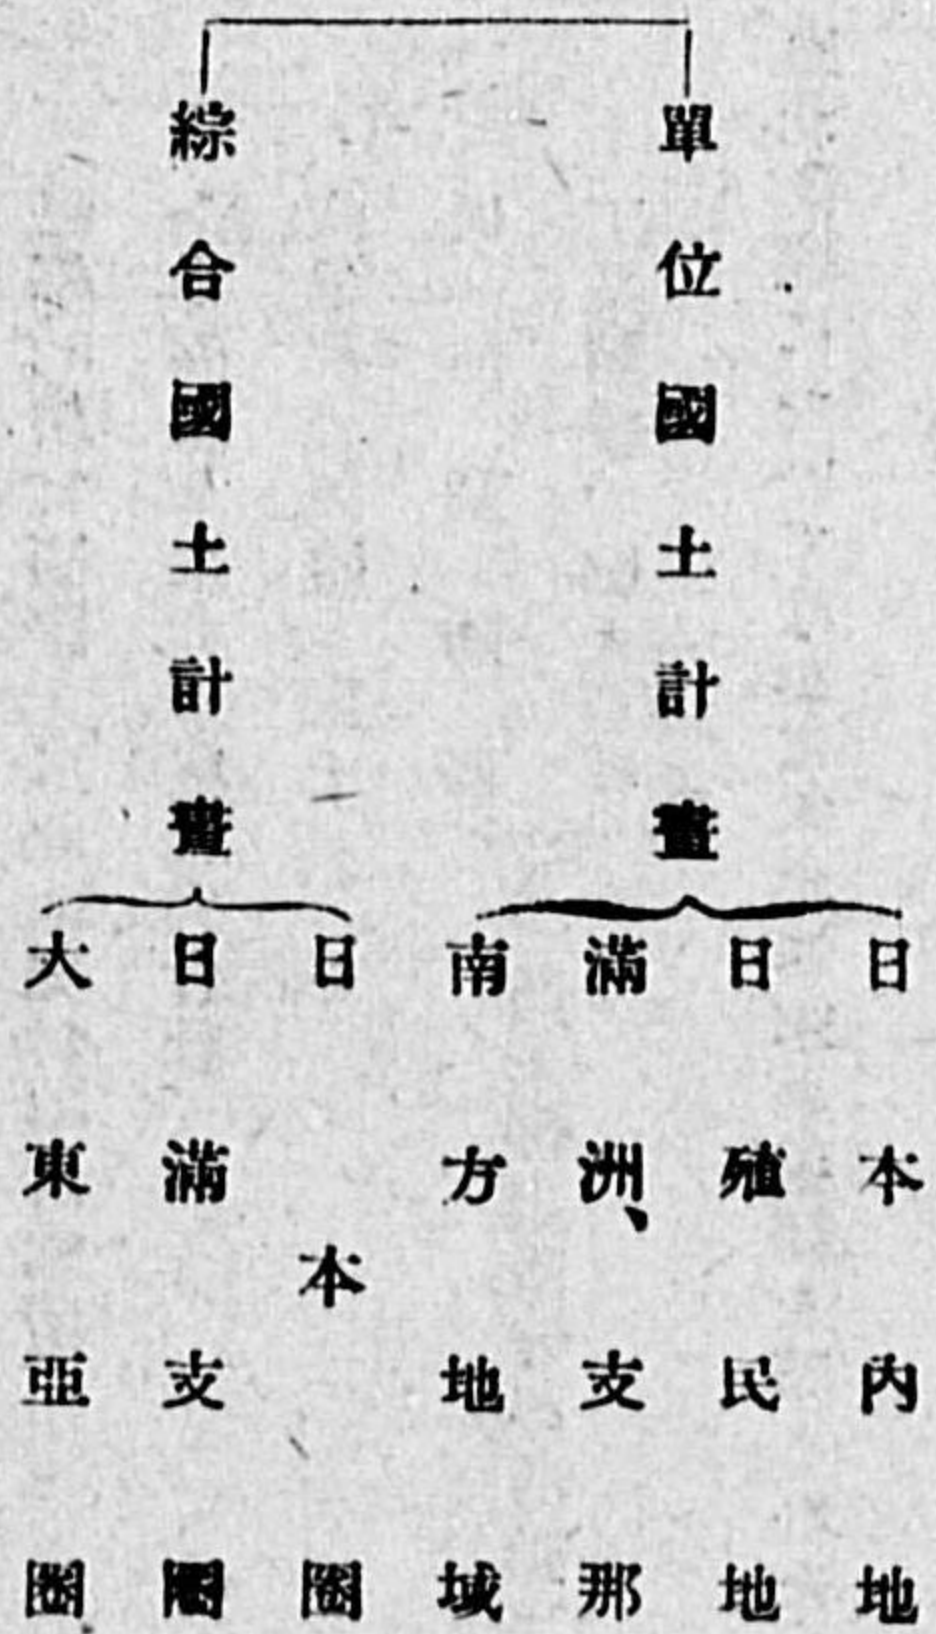 單位國土計畫
日本內地
日殖民地
滿洲、支那
南方地域
綜合國土計畫
日本圈
日滿支圈
大東亞圈